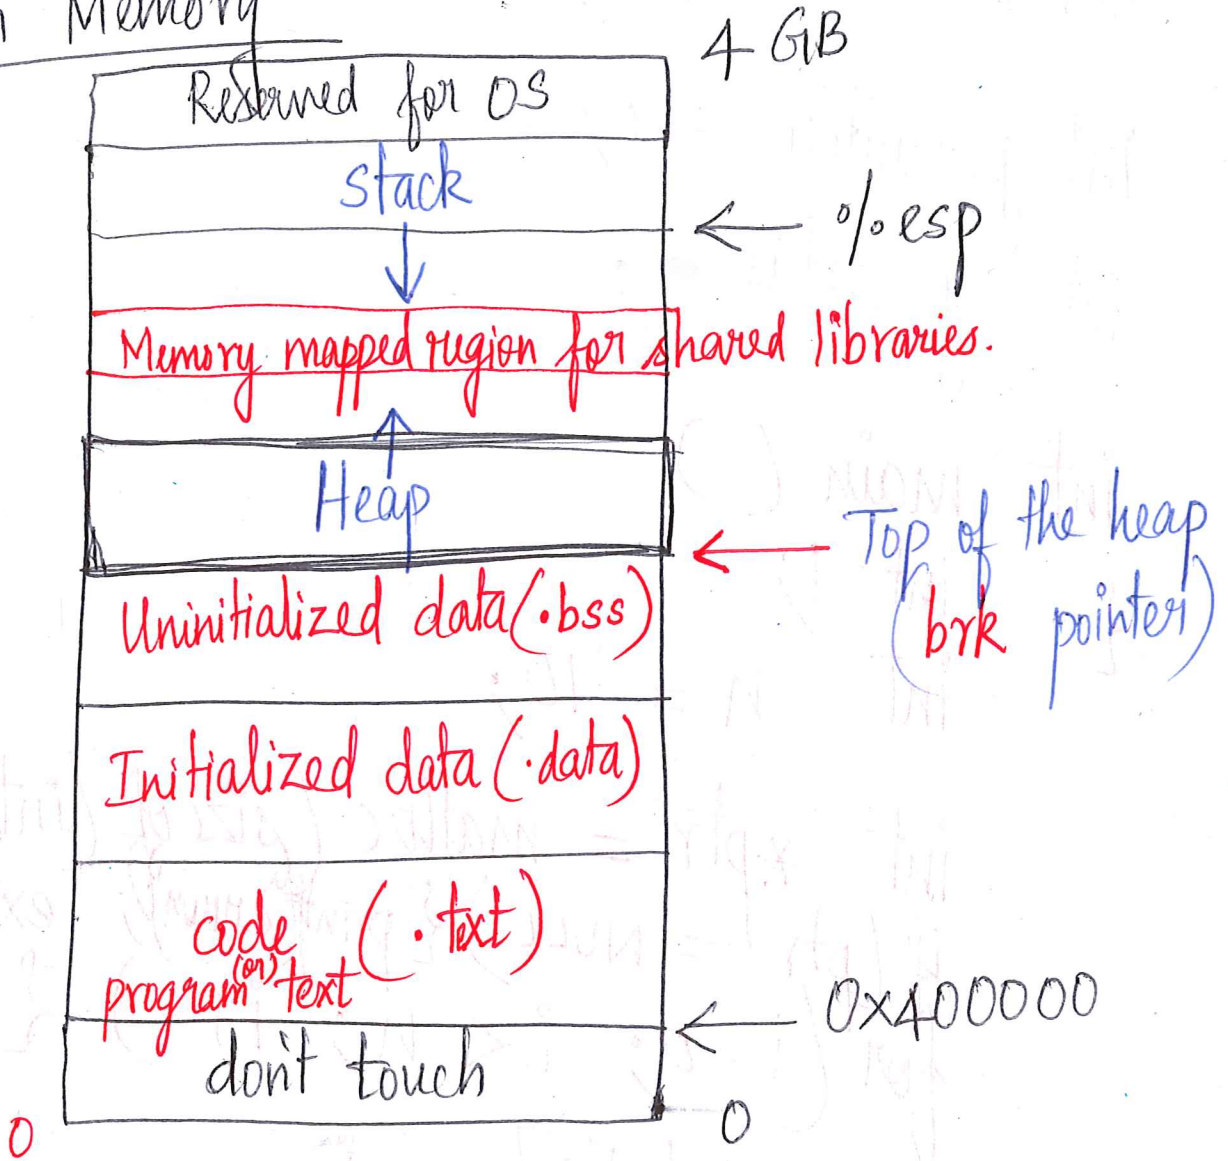 Memory
4 GB
Reserved for OS
Stack
%esp
Memory mapped region for shared libraries.
Heap
Top of the heap
(brk pointer)
Uninitialized data (.bss)
Initialized data (.data)
code (.text)
(or)
program text
0x400000
don't touch
0
0